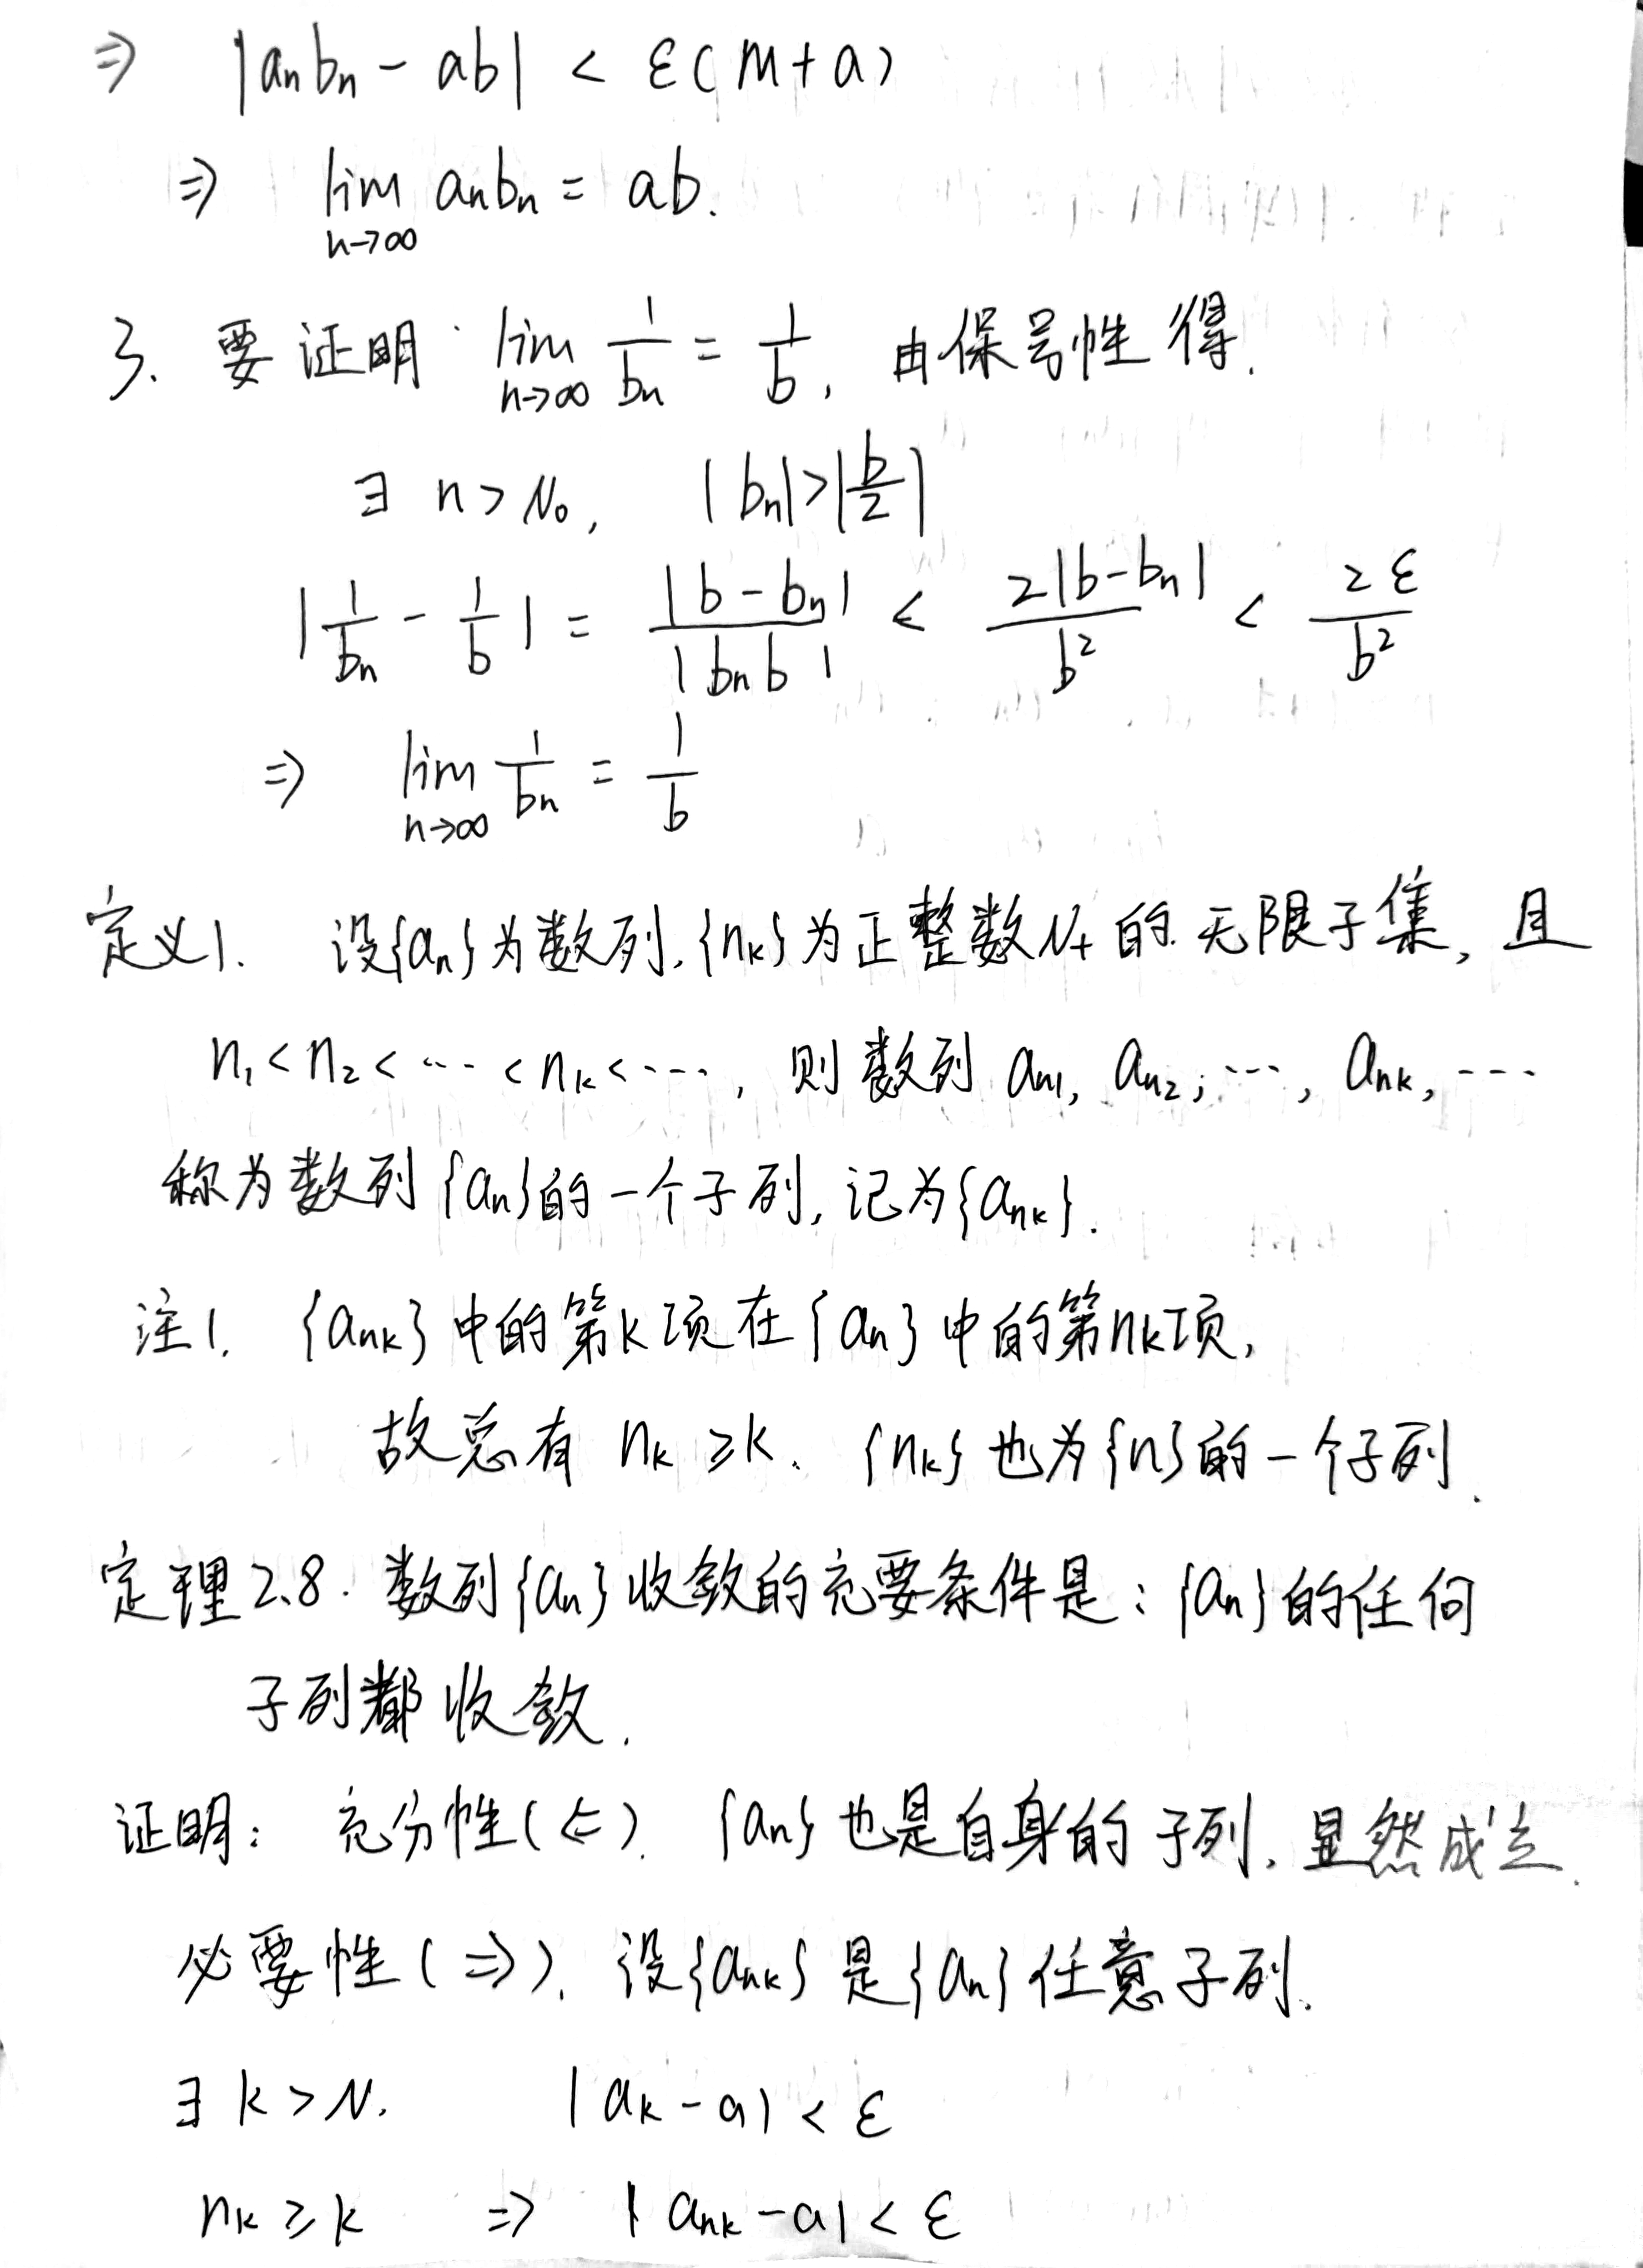 ⇒ |aₙbₙ - ab| < ε(M+a)
⇒ lim_{n→∞} aₙbₙ = ab.
3. 要证明 lim_{n→∞} 1/bₙ = 1/b, 由保号性得.
∃ n > N₀, |bₙ| > |b/2|
|1/bₙ - 1/b| = |b - bₙ|/|bₙb| < 2|b-bₙ|/b² < 2ε/b²
⇒ lim_{n→∞} 1/bₙ = 1/b
定义1. 设{aₙ}为数列,{nₖ}为正整数N₊的无限子集,且
n₁<n₂<…<nₖ<…, 则数列 a_{n1}, a_{n2}, …, a_{nk}, …
称为数列{aₙ}的一个子列,记为{a_{nk}}.
注1. {a_{nk}}中的第k项在{aₙ}中的第nk项,
故总有 nₖ ≥ k. {nₖ}也为{n}的一个子列.
定理2.8. 数列{aₙ}收敛的充要条件是:{aₙ}的任何
子列都收敛.
证明: 充分性(⇐). {aₙ}也是自身的子列,显然成立.
必要性(⇒). 设{a_{nk}}是{aₙ}任意子列.
∃ k > N. |aₖ - a| < ε
nₖ ≥ k ⇒ |a_{nk} - a| < ε